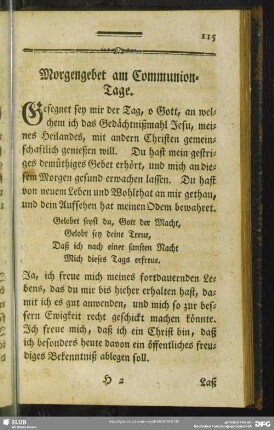 115
Morgengebet am Communion-
Tage.
Gesegnet sey mir der Tag, o Gott, an wel-
chem ich das Gedächtnißmahl Jesu, mei-
nes Heilandes, mit andern Christen gemein-
schaftlich genießen will. Du hast mein gestri-
ges demüthiges Gebet erhört, und mich an die-
sem Morgen gesund erwachen lassen. Du hast
von neuem Leben und Wohlthat an mir gethan,
und dein Aufsehen hat meinen Odem bewahret.
Gelobet seyst du, Gott der Macht,
Gelobt sey deine Treue,
Daß ich nach einer sanften Nacht
Mich dieses Tags erfreue.
Ja, ich freue mich meines fortdauernden Le-
bens, das du mir bis hieher erhalten hast, da-
mit ich es gut anwenden, und mich so zur bes-
sern Ewigkeit recht geschickt machen könnte.
Ich freue mich, daß ich ein Christ bin, daß
ich besonders heute davon ein öffentliches freu-
diges Bekenntniß ablegen soll.
H 2
Laß
SLUB
DFG